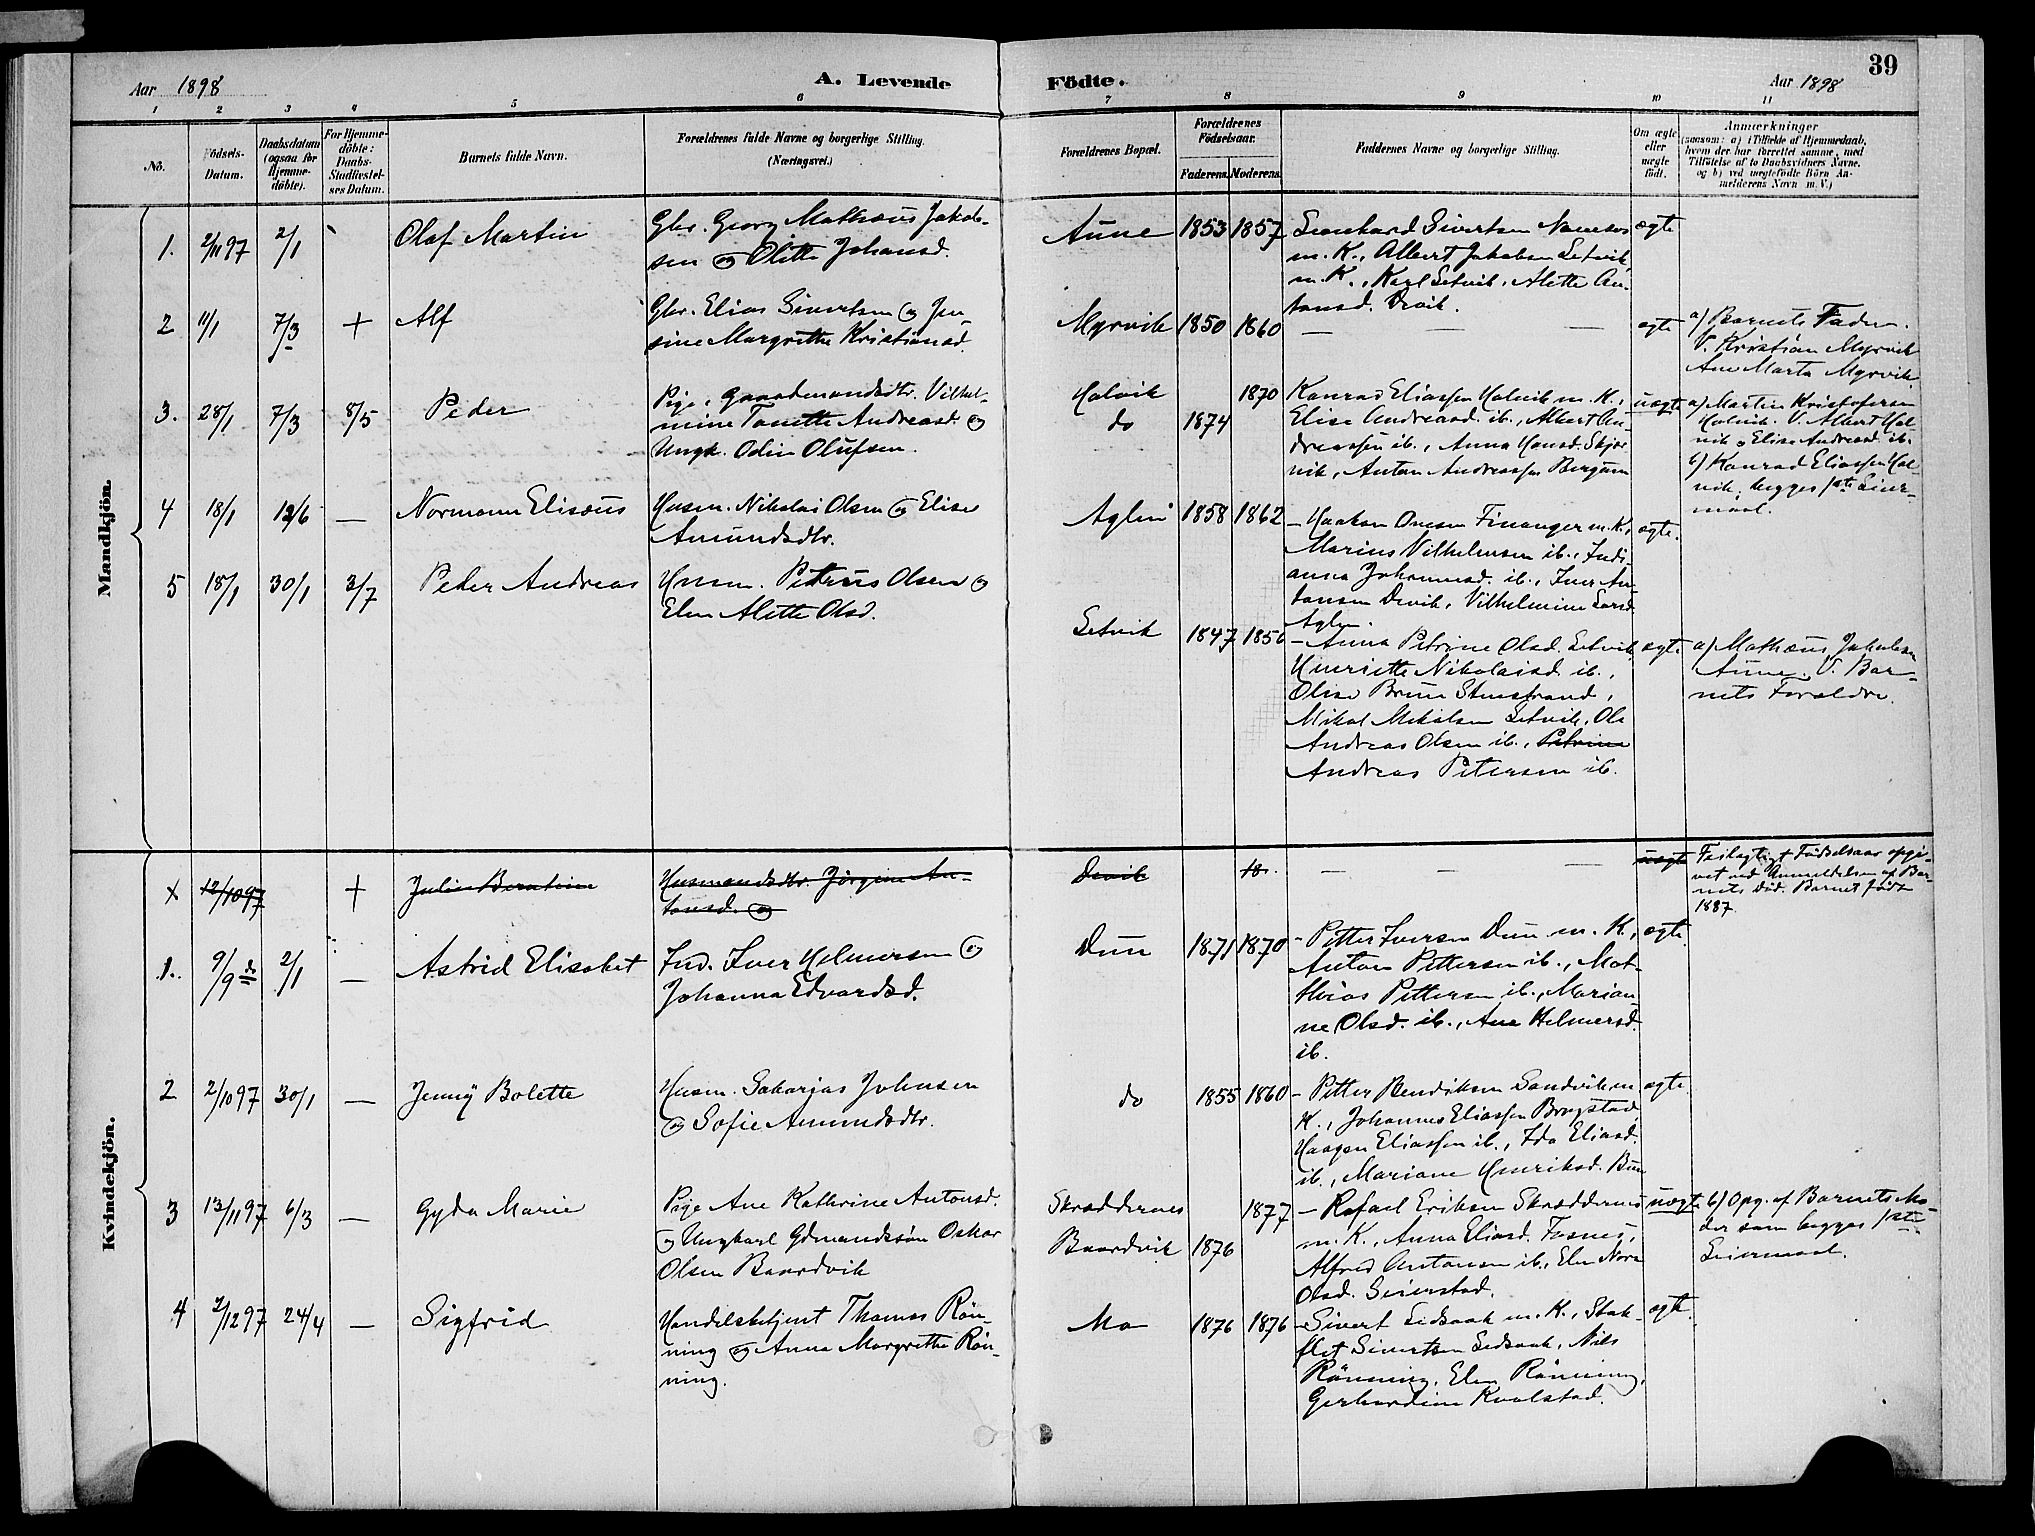 39
Aar 1898
A. Levende Födte.
Aar 1898
1 2 3 4 5 6 7 8 9 10 11
No.
Födsels-Datum.
Daabsdatum (ogsaa for Hjemme-döbte).
For Hjemme-döbte: Daabs-Stadfæstelses Datum.
Barnets fulde Navn.
Forældrenes fulde Navne og borgerlige Stilling.
(Næringsvei.)
Forældrenes Bopæl.
Forældrenes Födselsaar.
Faderens. Moderens.
Faddernes Navne og borgerlige Stilling.
Om ægte eller uægte født.
Anmærkninger
(saasom: a) i Tilfælde af Hjemmedaab,
hvem der har forrettet samme, med
Tilföielse af to Daabsvidners Navne,
og b) ved uægtefödte Börn An-
melderens Navn m. V.)
Mandkjön.
1. 2/11 97 2/1 Olaf Martin
Gbr. Georg Mathæus Jakob-
sen og Olitte Johansd.
Aune 1853 1857
Leonhard Sivertsen Namsos
m. K., Albert Jakobsen Setvik
m. K., Karl Setvik, Alette An-
tonsd. Devik.
ægte
2 11/1 7/3 + Alf
Gbr. Elias Sivertsen og Jen-
sine Margrethe Kristiansd.
Myrvik 1850 1860 — — —
ægte
a) Barnets Fader.
V. Kristian Myrvik
Ane Marta Myrvik
3. 28/1 7/3 8/5 Peder
Pige, Gaardmandsdtr. Vilhel-
mine Tonette Andreasd. og
Ungk. Odin Olufsen.
Holvik 1870
do 1874
Konrad Eliassen Holvik m. K.,
Elise Andreasd. ib., Albert An-
dreassen ib., Anna Hansd. Skjær-
vik, Anton Andreassen Bergum
uægte
a) Martin Kristofersen
Holvik. V. Albert Hol-
vik og Elise Andreasd. ib.
b) Konrad Eliassen Hol-
vik, begges 1ste Leier-
maal.
4 18/1 12/6 — Normann Elisæus
Husm. Nikolai Olsen og Elise
Amundsdtr.
Aglen 1858 1862
— Haakon Onesen Finanger m. K.,
Marius Vilhelmsen ib., Indi-
anna Johannesd. ib., Iver An-
tonsen Devik, Vilhelmine Larsd.
Aglen.
ægte.
5 18/1 30/1 3/7 Peder Andreas
Husm. Petrus Olsen og
Elen Alette Olsd.
Setvik 1847 1856
— Anna Petrine Olsd. Setvik,
Henriette Nikolaisd. ib.,
Olise Brun Stenstrand,
Mikal Mikalsen Setvik, Ole
Andreas Olsen ib., Petrine
Andreas Petersen ib.
ægte
a) Mathæus Jakobsen
Aune. V. Bar-
nets Forældre.
Kvindekjön.
x 12/10 97 + Julie Berntine
Husmandsdtr. Jörgine An-
tonsd. og
Devik — — —
uægte
Feilagtigt Födselsaar opgi-
vet ved Anmeldelsen af Bar-
nets Död. Barnet födt
1887.
1. 9/9 2/1 — Astrid Elisabet
Ind. Iver Helmersen og
Johanna Edvardsd.
Dun 1871 1870
— Petter Iversen Dun m. K.,
Anton Pettersen ib., Mat-
thias Pettersen ib., Marian-
ne Olsd. ib., Ane Helmersd.
ib.
ægte
2 2/10 97 30/1 — Jenny Bolette
Husm. Sakarjas Johnsen
og Sofie Amundsdtr.
do 1855 1860
— Petter Bendiksen Sandvik m
K., Johannes Eliassen Brugstad,
Haagen Eliassen ib., Ida Eliasd.
ib., Mariane Henriksd. Dun
ægte
3 13/11 97 6/3 — Gyda Marie
Pige Ane Kathrine Antonsd.
og Ungkarl Gdmandssön Oskar
Olsen Baardvik
Skræddernes 1877
Baardvik 1876
— Rafael Eriksen Skræddernes
m. K., Anna Eliasd. Fosnes,
Alfred Antonsen ib., Elen Nora
Olsd. Seierstad.
uægte
b) Opg. af Barnets Mo-
der som begges 1ste
Leiermaal.
4 2/12 97 24/4 — Sigfrid
Handelsbetjent Thomas Rön-
ning og Anna Margrethe Rön-
ning.
Mo 1876 1876
— Sivert Sidsaak m. K.,
Sivertsen Sidsaak, Nils
Rönning, Elen Rönning,
Gerhardine Kvalstad.
ægte